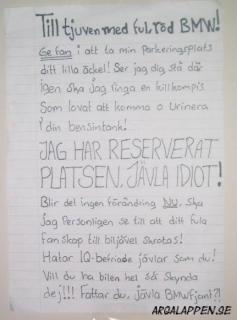 Till tjuven med ful röd BMW!
Ge fan i att ta min parkeringsplats
ditt lilla äckel! Ser jag dig stå där
igen ska jag ringa en killkompis
som lovat att komma o Urinera
i din bensintank!
JAG HAR RESERVERAT
PLATSEN, JÄVLA IDIOT!
Blir det ingen förändring NU, ska
jag Personligen se till att ditt fula
fanskap till biljävel skrotas!
Hatar IQ-befriade jävlar som du!
Vill du ha bilen hel så Skynda
dej!!! Fattar du, jävla BMWfjant?!
ARGALAPPEN.SE